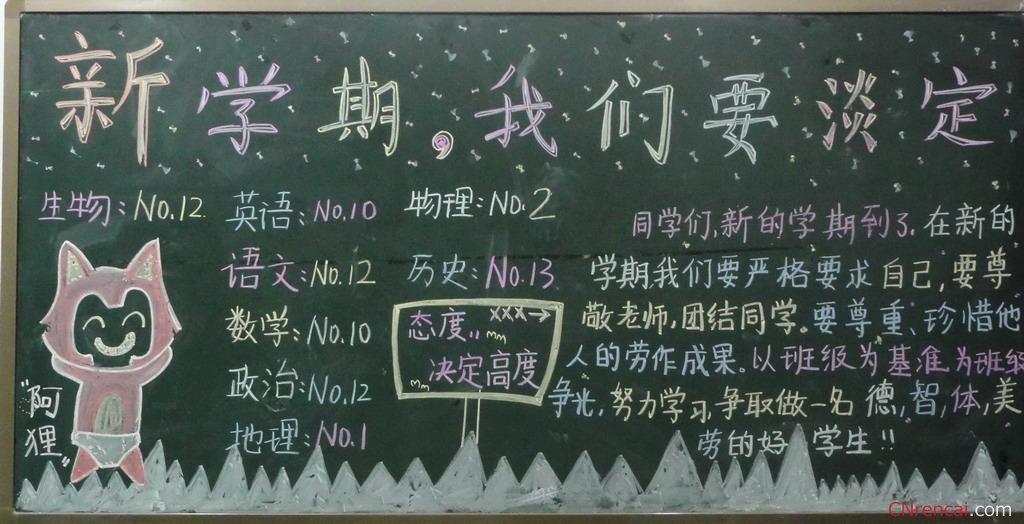 新学期,我们要淡定
生物:No.12.
英语:No.10
物理:No.2
语文:No.12
历史:No.13
数学:No.10
政治:No.12
地理:No.1
态度,,
XXX→
决定高度
"阿
狸"
同学们,新的学期到了.在新的
学期我们要严格要求自己,要尊
敬老师,团结同学。要尊重、珍惜他
人的劳作成果。以班级为基准为班级
争光,努力学习,争取做一名德,智,体,美
劳的好学生!!
CNrencai.com